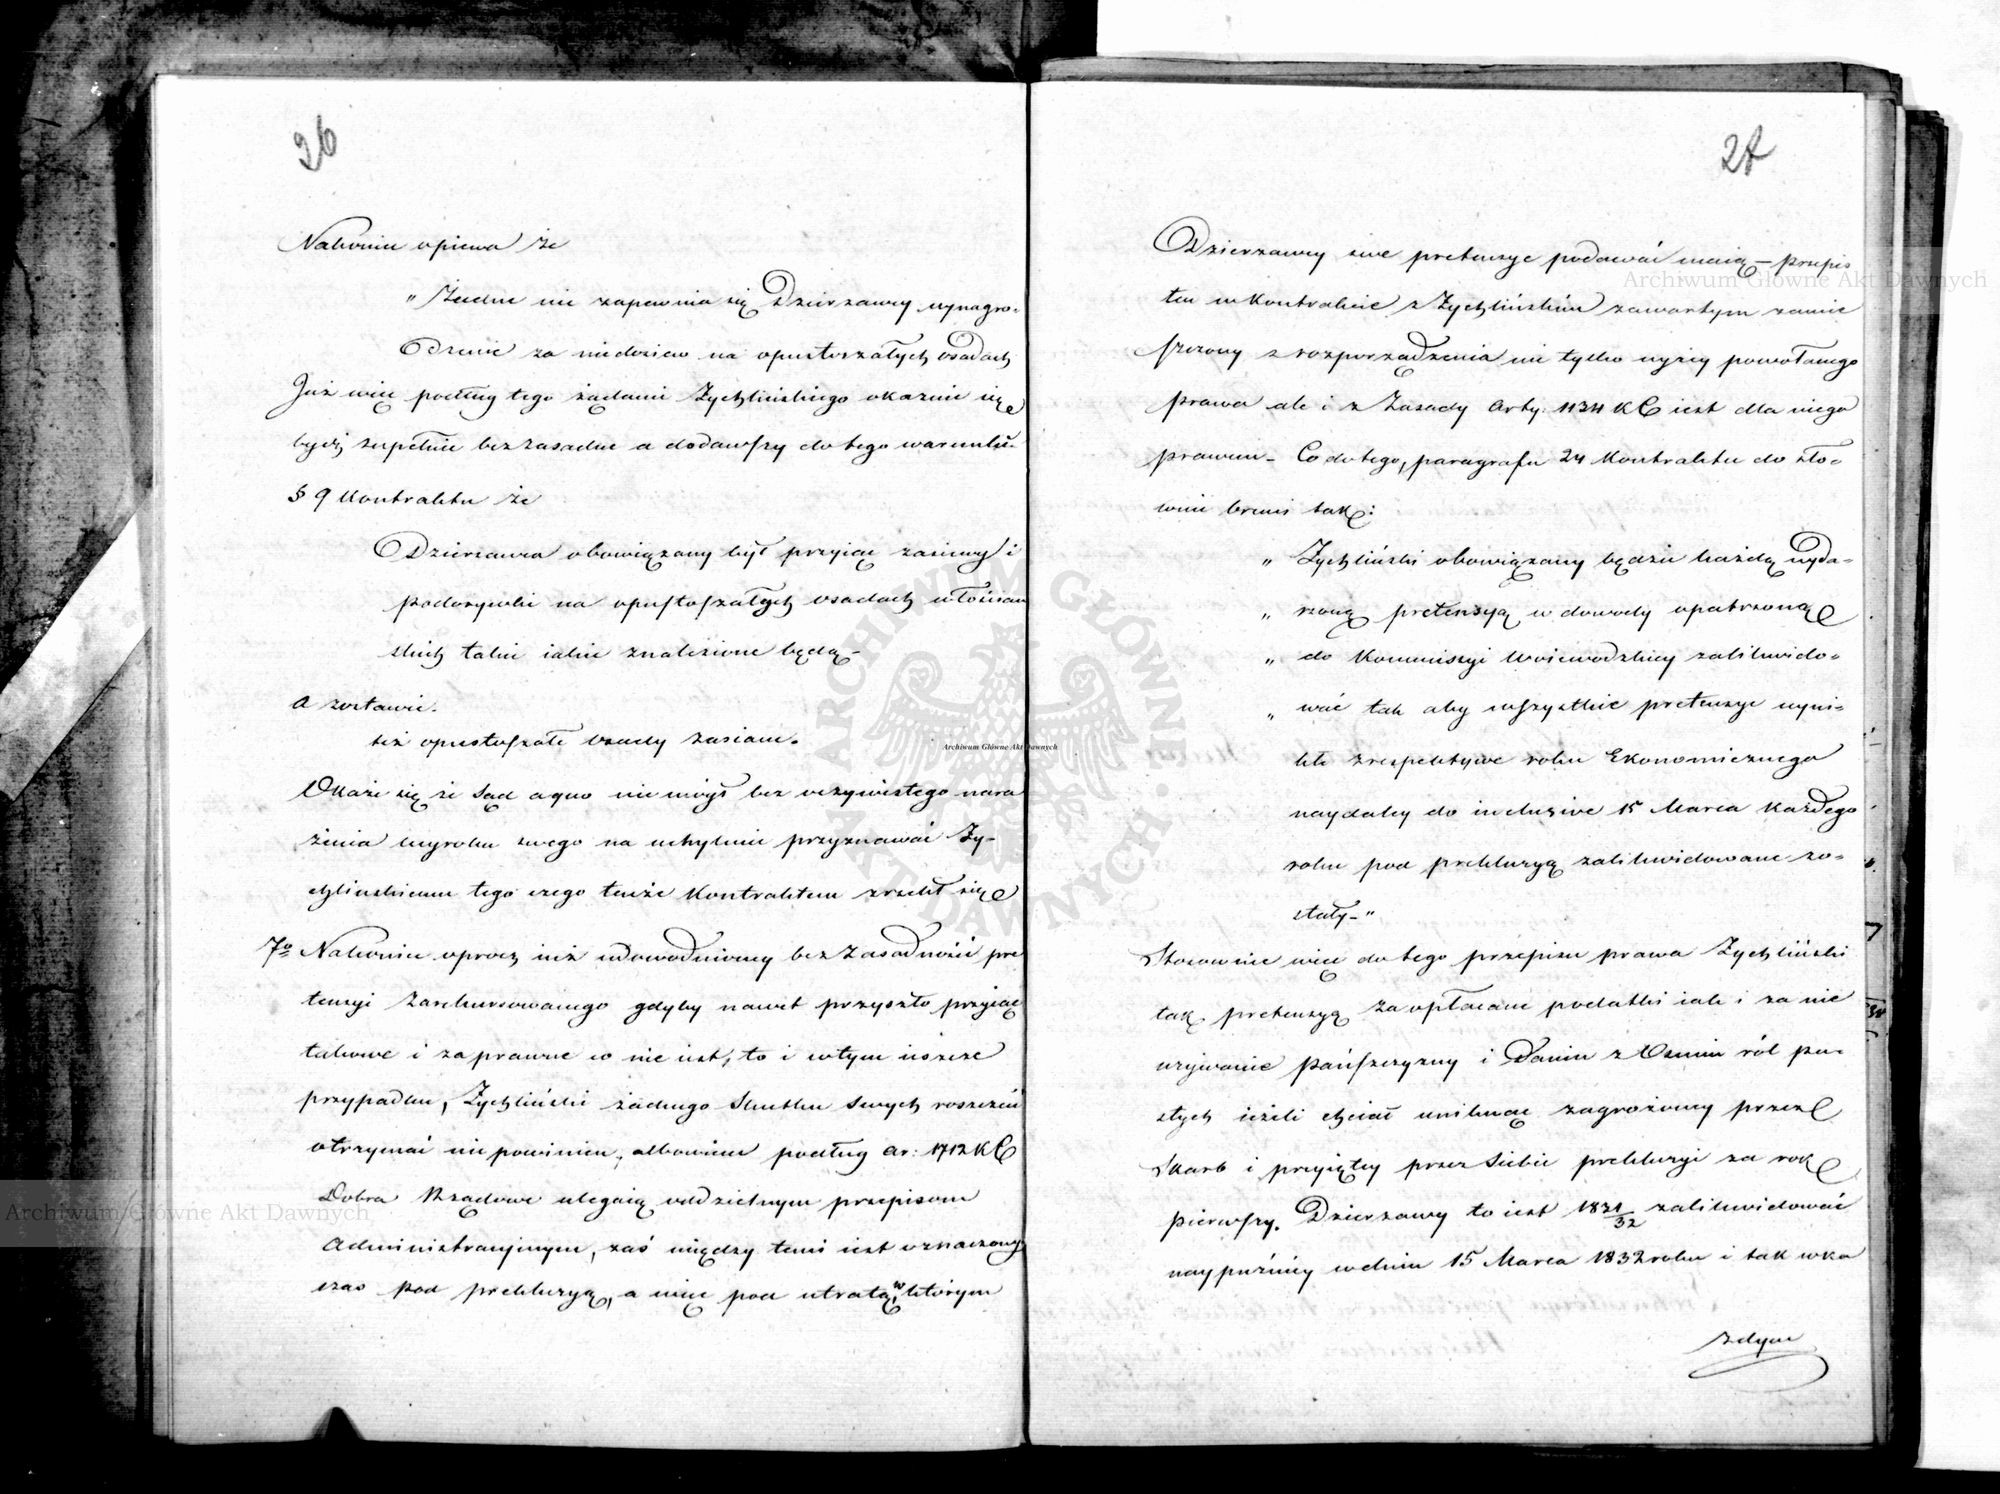 26
Nakonie opiewa że
„ Żadne nie zapewnia się Dzierżawcy wynagro-
dzenie za niedosiew na opustoszałych osadach
Już więc podług tego żądanie Zychlińskiego okaznie się
bydź zupełnie bezzasadne a dodawszy do tego warunku
§ 9 Kontraktu że
Dzierżawca obowiązany był przyiąć zasiewy i
podorywki na opustoszałych osadach włościań
skich takie iakie znalezione będą –
a zostawić.
też opustoszałe osady zasiane.
Okaże się że Sąd a quo nie mógł bez oczywistego nara
żenia wyroku swego na uchylenie przyznawać Zy-
chlinskiemu tego czego tenże Kontraktem zrzekł się
7o Nakoniec oprócz iuż udowodnioney bezzasadności pre
tensyi zarekursowanego gdyby nawet przyszło przyiąć
takowe i za prawne co nie iest, to i wtym ieszcze
przypadku, Zychliński żadnego skutku swych roszczeń
otrzymać nie powinien, albowiem podług ar: 1712 KC
Dobra Rządowe ulegaią oddzielnym przepisom
Administracyjnym, zaś między temi iest oznaczony
czas pod prekluzyą, a więc pod utratą, w którym
27
Dzierżawcy swe pretensye podawać maią – przepis
ten w Kontrakcie z Zychlińskim zawartym zamie
szczony z rozporządzenia nie tylko wyżey powołanego
prawa ale i z Zasady Arty: 1134 KC iest dla niego
prawem – Co do tego, paragrafu 24 Kontraktu do sło-
wnie brzmi tak:
„ Zychliński obowiązany będzie każdą wyda-
„ rzoną pretensyą w dowody opatrzoną
„ do Kommissyi Woiewodzkiey zalikwido-
„ wać tak aby wszystkie pretensye wyni-
kłe z respektywe roku Ekonomicznego
naydaley do inclusive 15 Marca każdego
roku pod prekluzyą zalikwidowane zo-
stały – "
Stosownie więc do tego przepisu prawa Zychliński
tak pretensyą za opłacane podatki iak i za nie
uzywanie pańszczyzny i Danin z Osmiu ról pu-
stych ieżeli chciał uniknąć zagrożoney przez
Skarb i przyiętey przez Siebie prekluzyi za rok
pierwszy. Dzierżawy to iest 1831/32 zalikwidować
naypóźniey w dniu 15 Marca 1832 roku i tak w ka
żdym
Archiwum Główne Akt Dawnych
Archiwum Główne Akt Dawnych
Archiwum Główne Akt Dawnych
ARCHIWUM GŁÓWNE AKT DAWNYCH